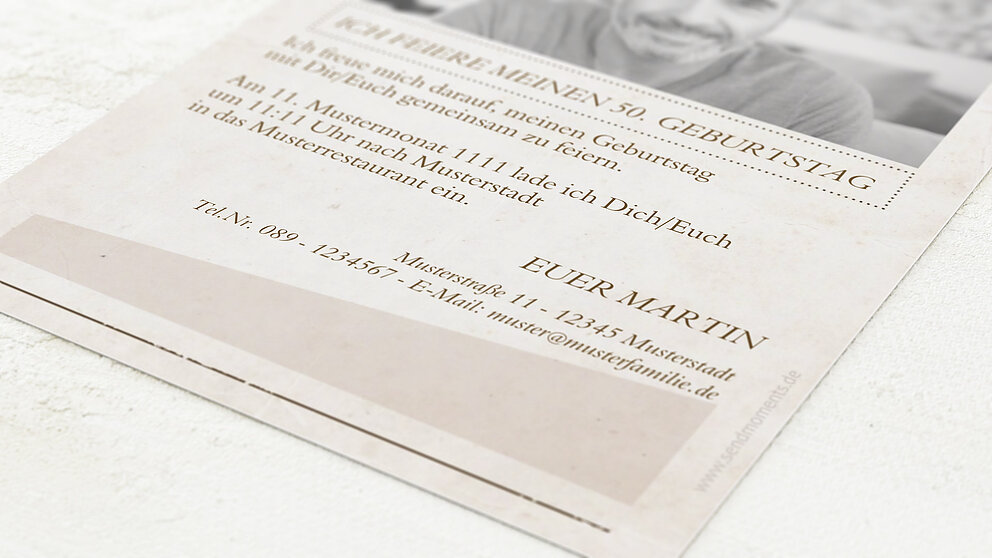 ICH FEIERE MEINEN 50. GEBURTSTAG
Ich freue mich darauf, meinen Geburtstag
mit Dir/Euch gemeinsam zu feiern.
Am 11. Mustermonat 1111 lade ich Dich/Euch
um 11:11 Uhr nach Musterstadt
in das Musterrestaurant ein.
EUER MARTIN
Musterstraße 11 - 12345 Musterstadt
Tel.Nr. 089 - 1234567 - E-Mail: muster@musterfamilie.de
www.sendmoments.de